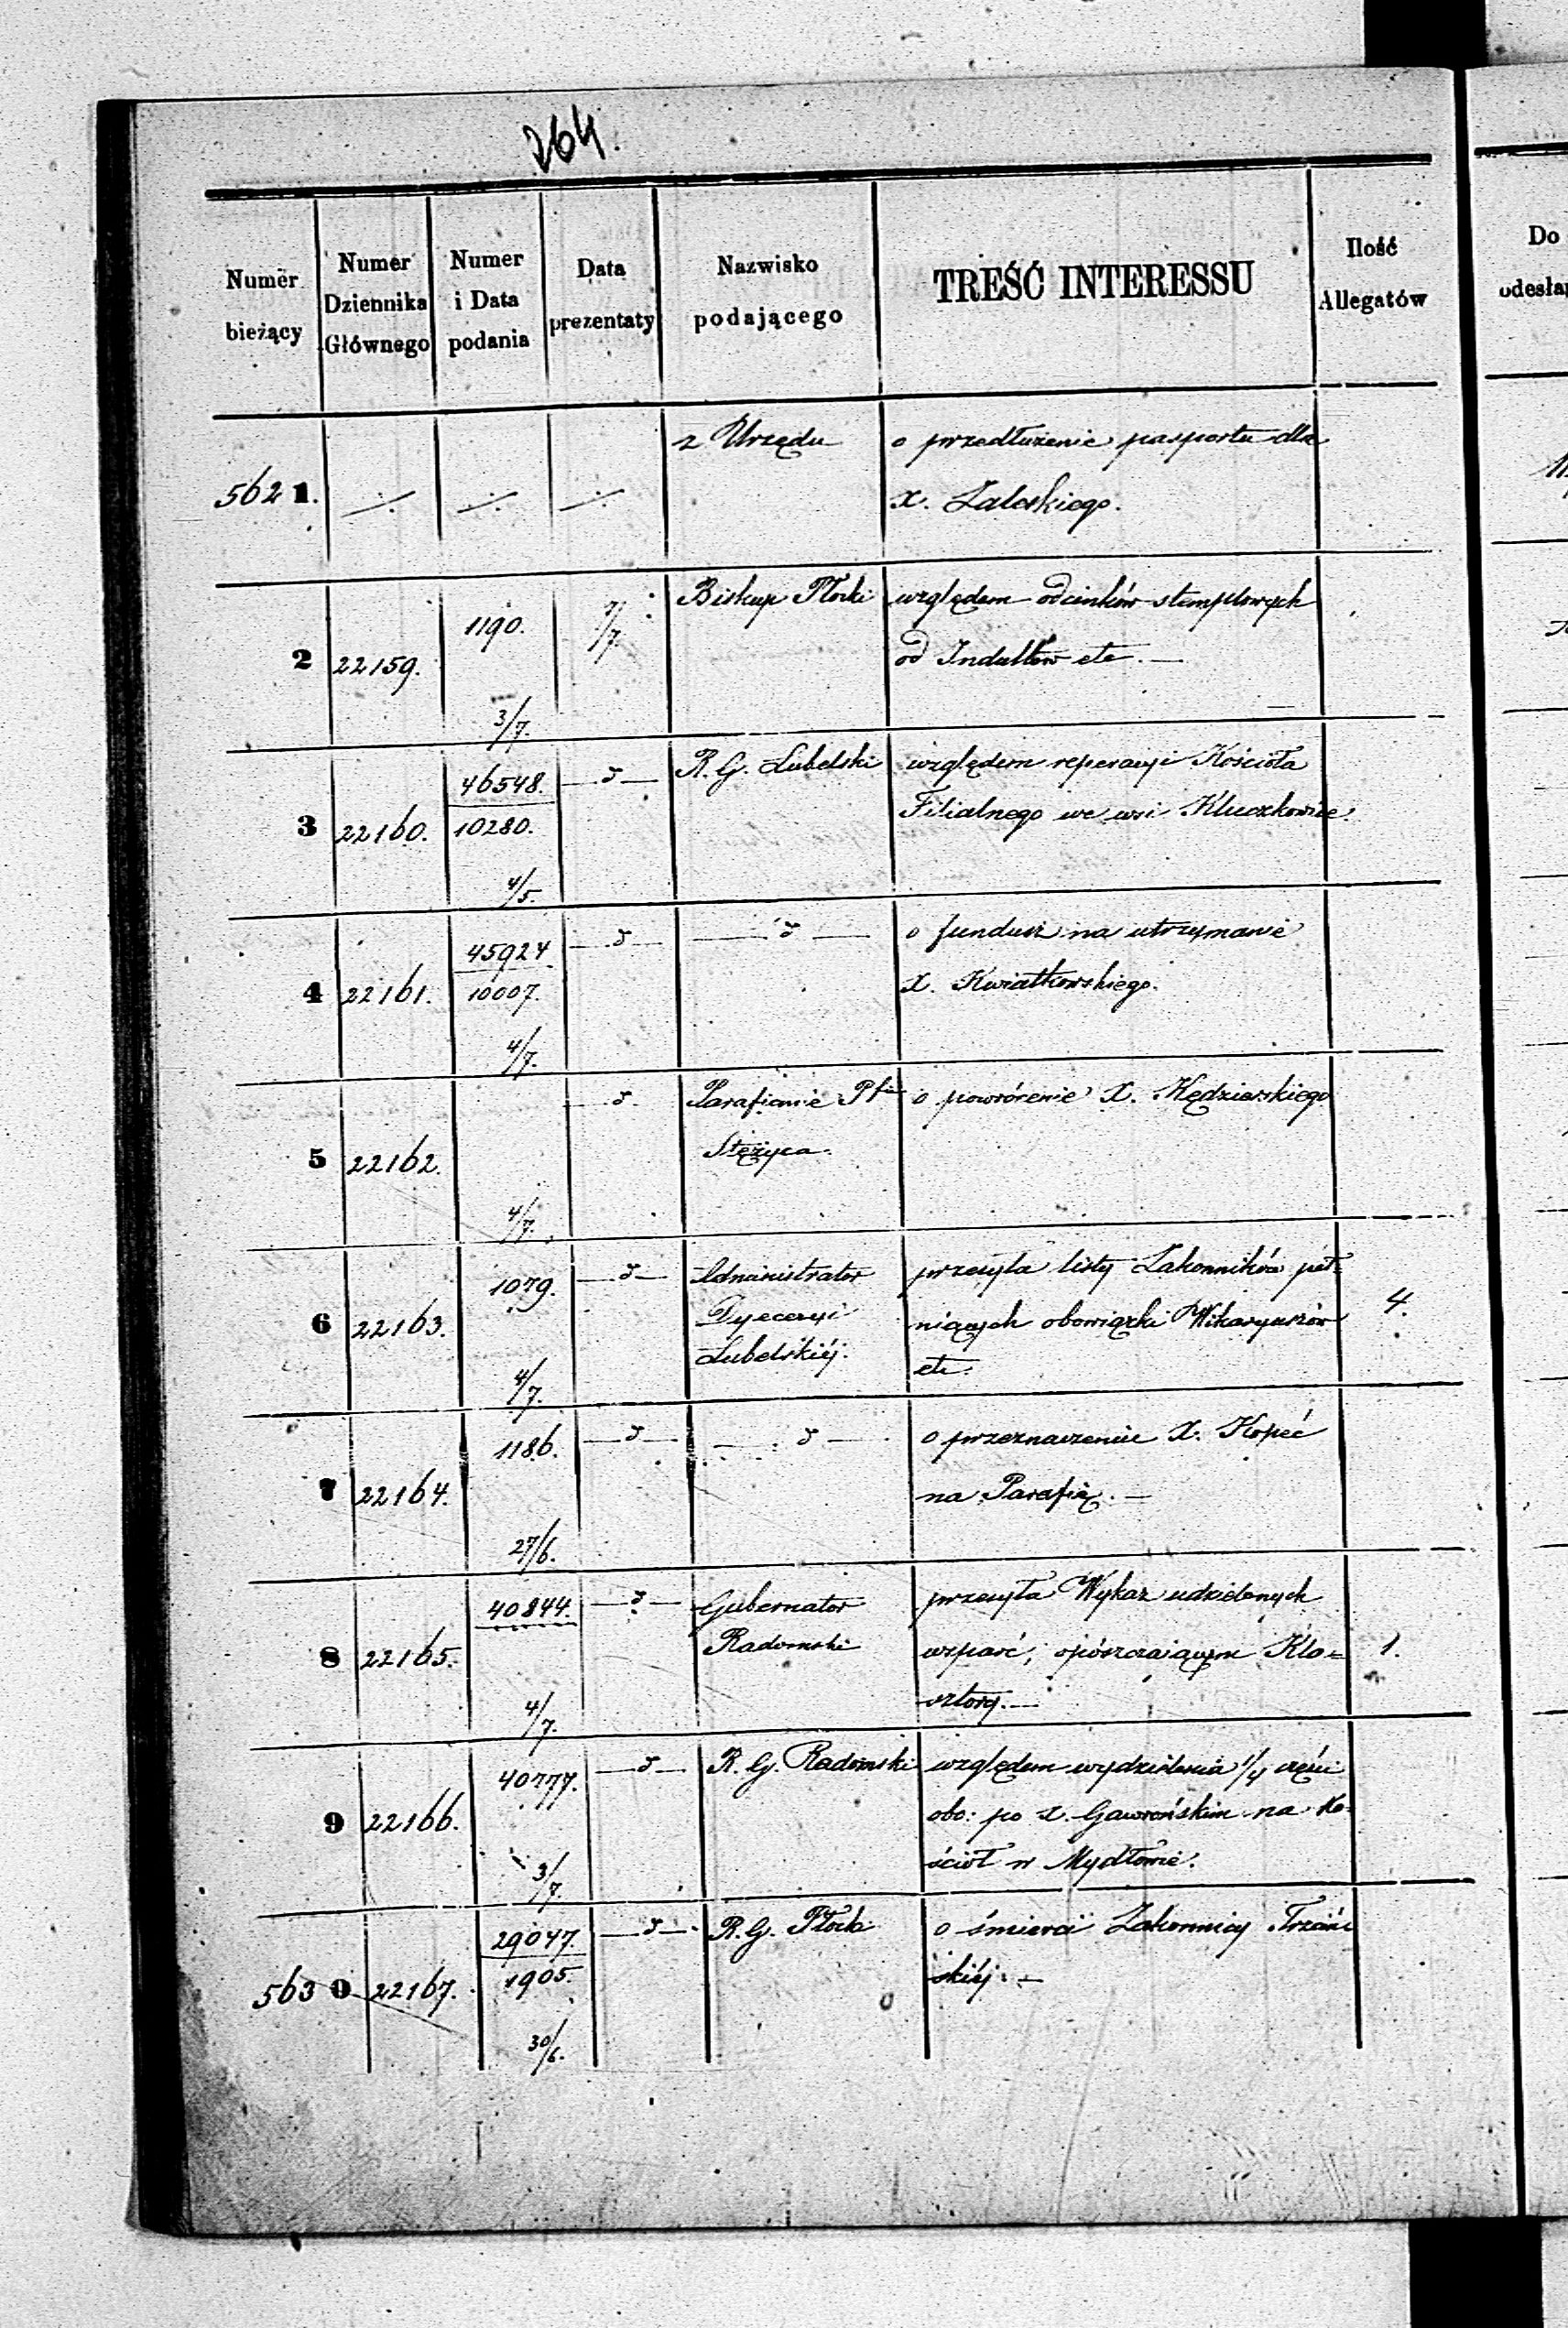 264.
Numer bieżący | Numer Dziennika Głównego | Numer i Data podania | Data prezentaty | Nazwisko podającego | TREŚĆ INTERESSU | Ilość Allegatów | Do
5621. | ./. | ./. | ./. | z Urzędu | o przedłużenie pasportu dla
X. Zaleskiego.
2 | 22159. | 1190. 3/7. | 7/7. | Biskup Płocki | względem odcinków stemplowych
od Indultów etc. —
3 | 22160. | 46548. 10280. 4/5. | — d — | R. G. Lubelski | względem reperacyi Kościoła
Filialnego we wsi Kluczkowice.
4 | 22161. | 45924 10007. 4/7. | — d — | — d — | o fundusz na utrzymanie
X. Kwiatkowskiego.
5 | 22162. | 4/7. | — d. | Parafianie Pfii | o powrócenie X. Kędzierskiego
Stężyca.
6 | 22163. | 1079. 4/7. | — d — | Administrator | przesyła listy Zakonników peł- | 4.
Dyecezyi | niących obowiązki Wikaryuszów
Lubelskiéj. | etc.
7 | 22164. | 1186. 27/6. | — d — | — d — | o przeznaczenie X. Kopeć
na Parafię. —
8 | 22165. | 40844. 4/7. | — d — | Gubernator | przesyła Wykaz udzielonych | 1.
Radomski | wsparć, opószczaiącym Kla=
sztory. —
9 | 22166. | 40777. 3/7. | — d — | R. G. Radomski | względem wydzielenia 1/4 części
obo: po X. Gawrońskim na Ko-
ściół w Mydłowie.
5630 | 22167. | 29047. 1905. 30/6. | — d — | R. G. Płocki | o śmierci Zakonnicy
skiéj. —